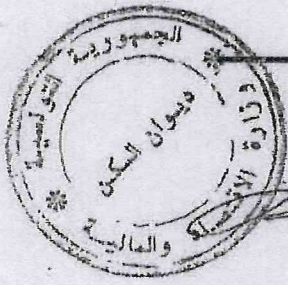 الجمهورية التونسية
وزارة الاقتصاد والمالية
ديوان السكن